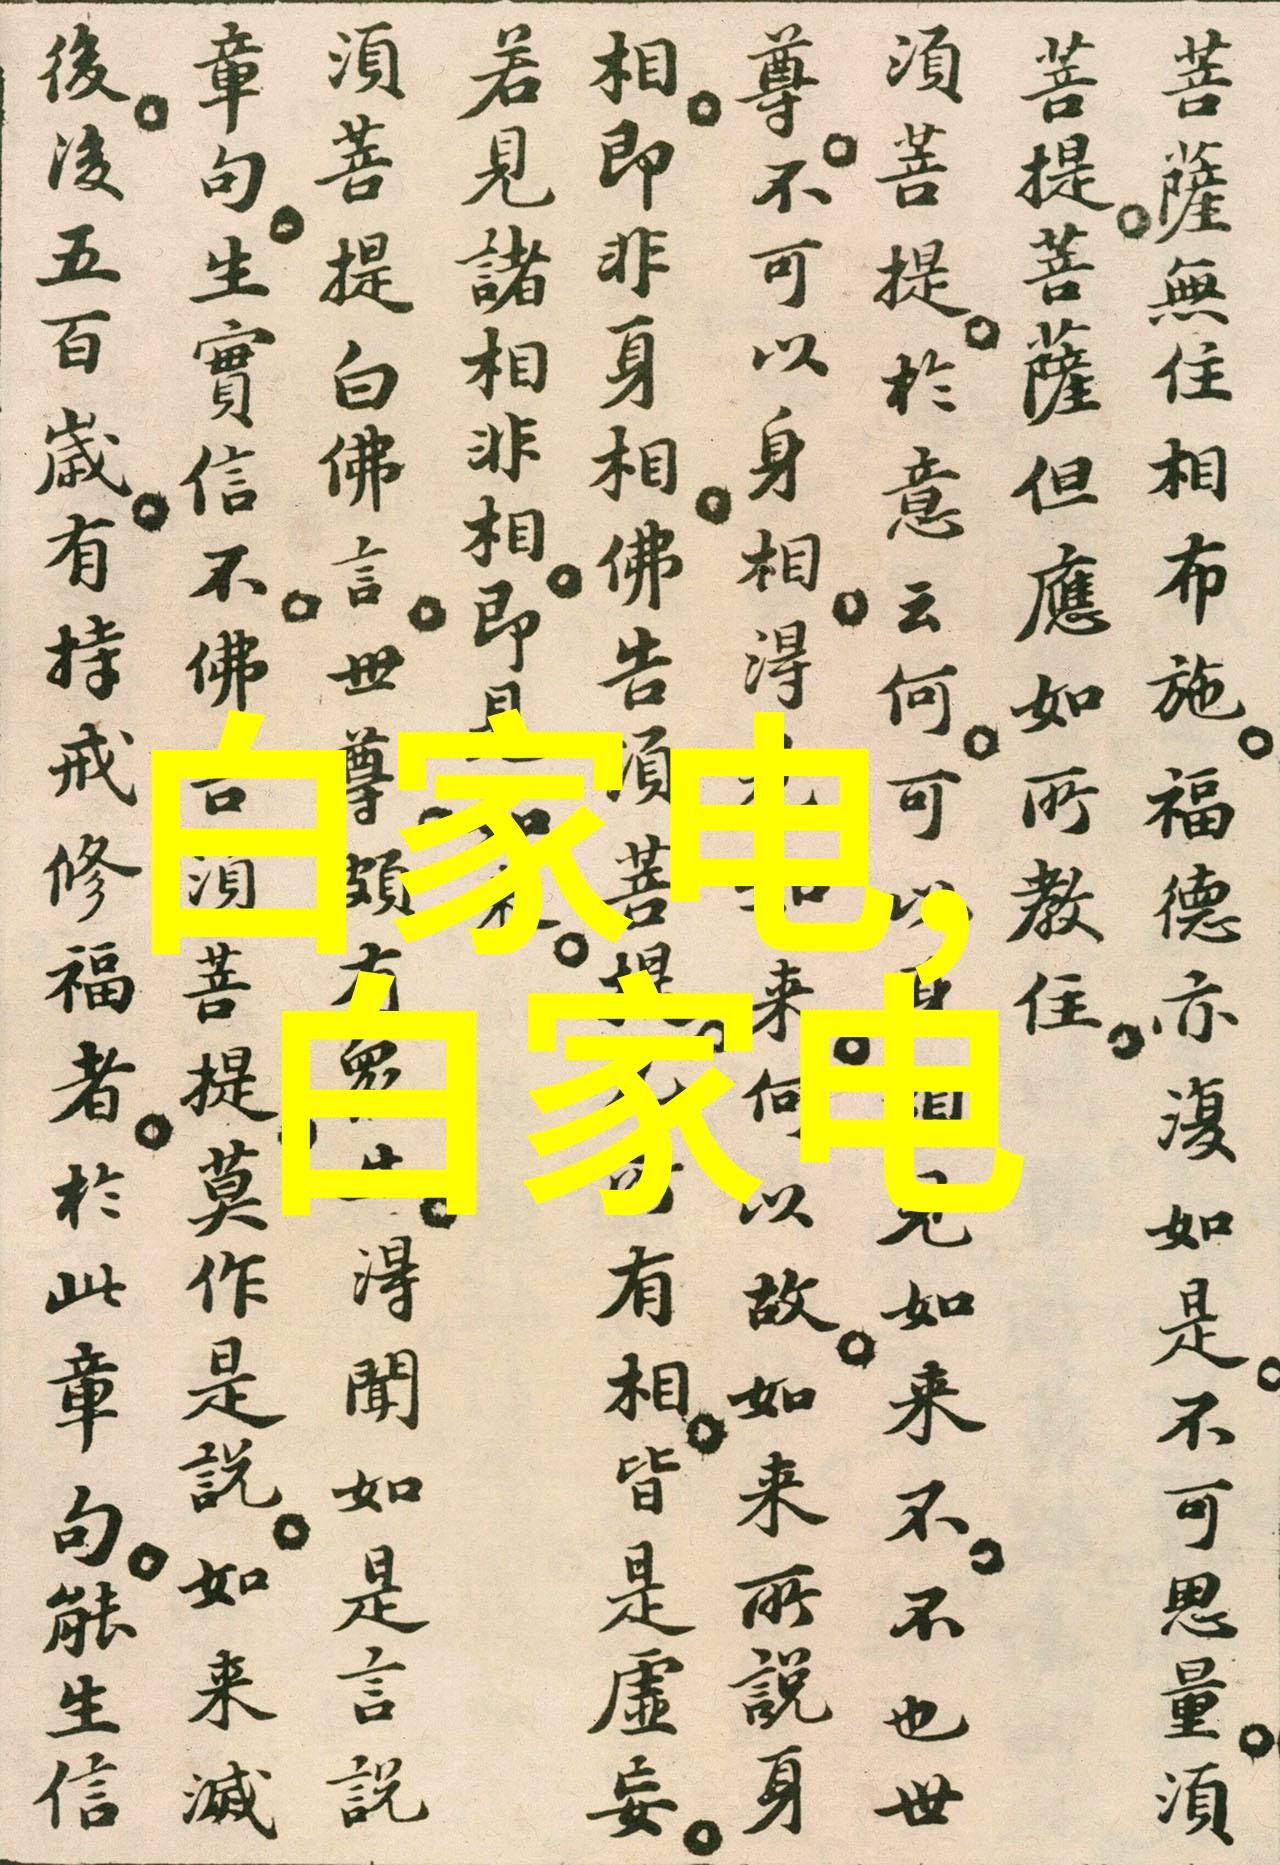 菩薩無住相布施。福德亦復如是。不可思量。須
菩提。菩薩但應如所教住。
須菩提。於意云何。可以身相見如来不。不也世
尊。不可以身相。得見如来。何以故。如来所說身
相。即非身相。佛告須菩提。凡所有相。皆是虛妄。
若見諸相非相。即見如来。
須菩提白佛言。世尊。頗有衆生。得聞如是言說
章句。生實信不。佛告須菩提。莫作是說。如来滅
後。後五百歲。有持戒修福者。於此章句。能生信
白家电,
白家电